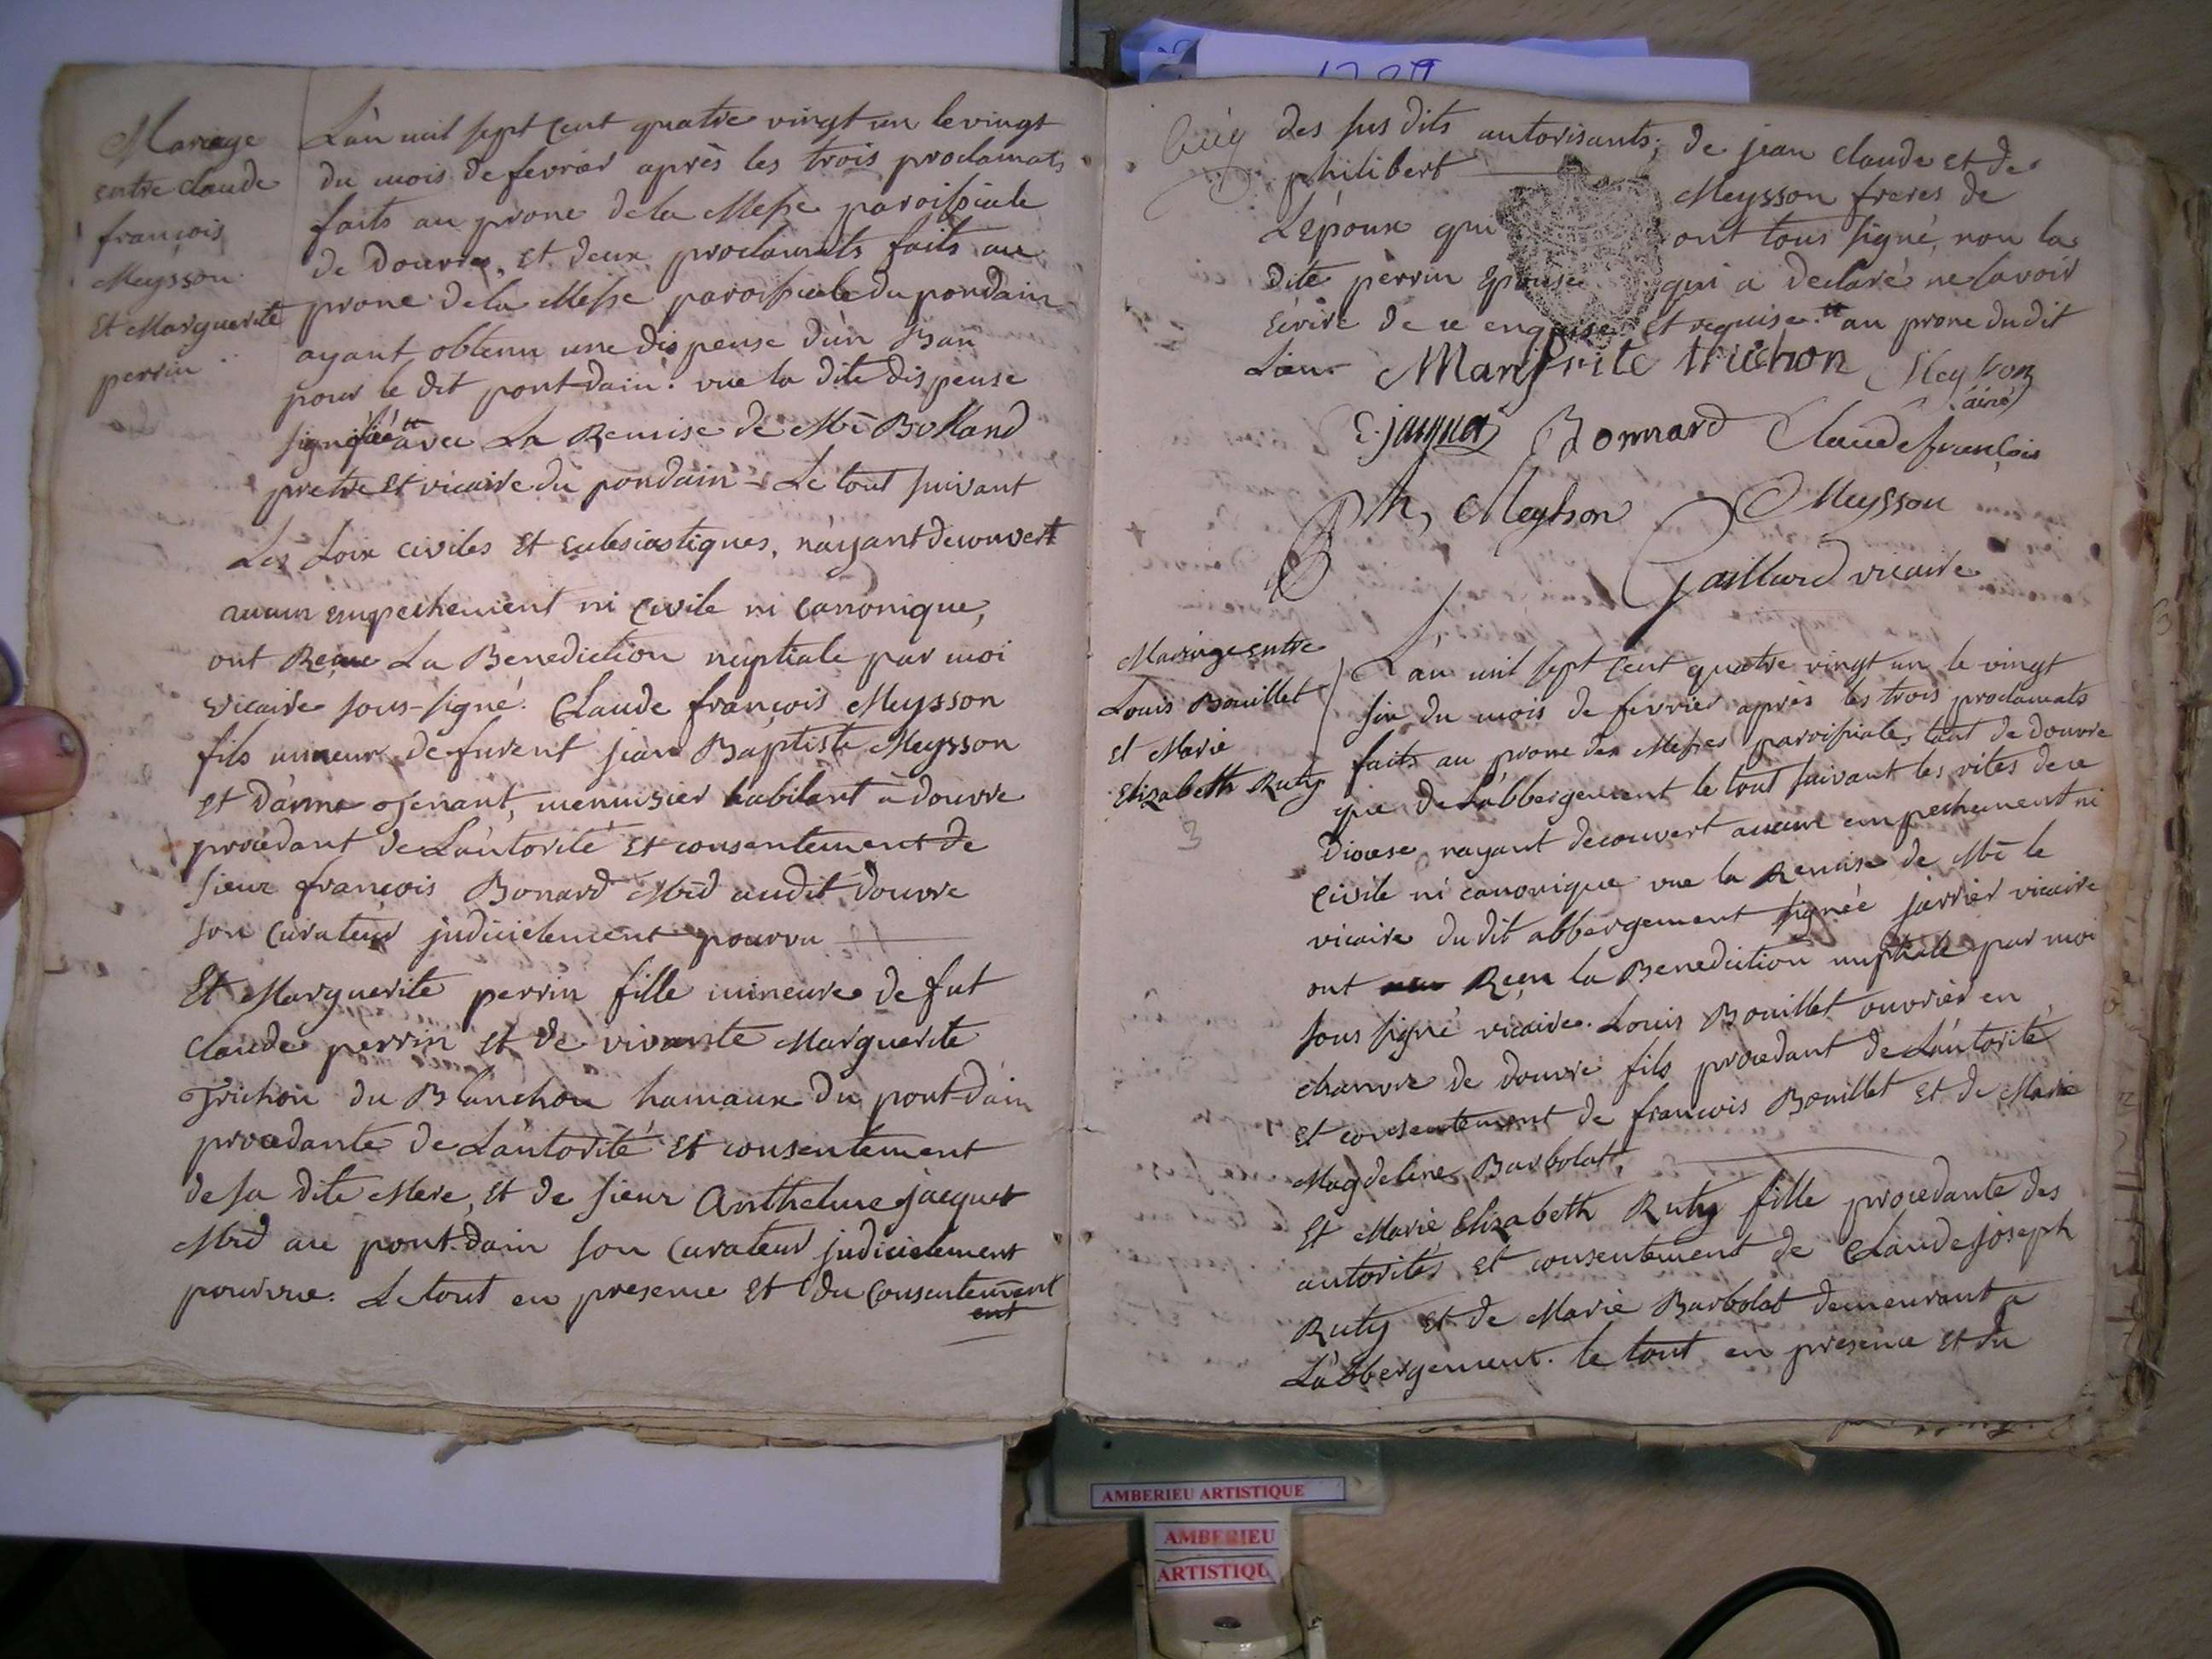 Mariage
entre claude
françois
Meysson
Et Marguerite
perrin
L'an mil sept cent quatre vingt un le vingt
du mois de fevrier après les trois proclamats
faits au prone de la Messe paroissiale
de Douvres, et deux proclamats faits au
prone de la Messe paroissiale du pondain
ayant obtenu une dispense d'un Ban
pour le dit pont dain. vue la dite dispense
avec La Remise de Mr Bolland
pretre et vicaire du pondain - Le tout suivant
Les Loix civiles Et Eclesiastiques, n'ayant decouvert
aucun empechement ni Civile ni Canonique,
ont Reçue La Benediction nuptiale par moi
vicaire sous-signé. Claude françois Meysson
fils mineur de furent jean Baptiste Meysson
et d'anne ojenant, menuisier habitant à douvre
procedant de L'autorité Et consentement de
sieur françois Bonard Mrd audit Douvre
son Curateur judicielement pourvu
Et Marguerite perrin fille mineure de fut
Claude perrin Et de vivante Marguerite
Trichon du Blanchon hamaux du pont-dain
procedante de L'autorité Et consentement
de sa dite Mere, Et de sieur Anthelme jacquet
Mrd au pont-dain son Curateur judicielement
pourvue. Le tout en presence Et du Consentement
ent
des sus dits autorisants; de jean claude et de
philibert Meysson freres de
L'époux qui ont tous signé, non la
dite perrin Epouse qui a declaré ne savoir
Ecrire de ce enquise Et requise. tt au prone du dit
Lieu. Margurite trichon Meysson
ainé
E. jaquet Bonnard Claude françois
Ph, Meysson Meysson
Gaillard vicaire
Mariage entre
Louis Bouillet
Et Marie
Elizabeth Ruty
3
L'an mil sept Cent quatre vingt un le vingt
six du mois de fevrier après les trois proclamats
faits au prone des Messes paroissiales tant de douvre
que de L'abbergement le tout suivant les rites de ce
Diocese, n'ayant decouvert aucun empechement ni
Civile ni canonique vue la Remise de Mr le
vicaire du dit abbergement signée jarrier vicaire
ont Reçu la Benediction nuptiale par moi
sous signé vicaire. Louis Bouillet ouvrier en
chanvre de douvre fils procedant de L'autorité
et consentement de françois Bouillet Et de Marie
Magdeleine Barbolat,
Et Marie Elizabeth Ruty fille procedante des
autorités et consentement de Claude joseph
Ruty Et de Marie Barbolat demeurant a
L'abbergement. le tout en presence et du
AMBERIEU ARTISTIQUE
AMBERIEU
ARTISTIQU